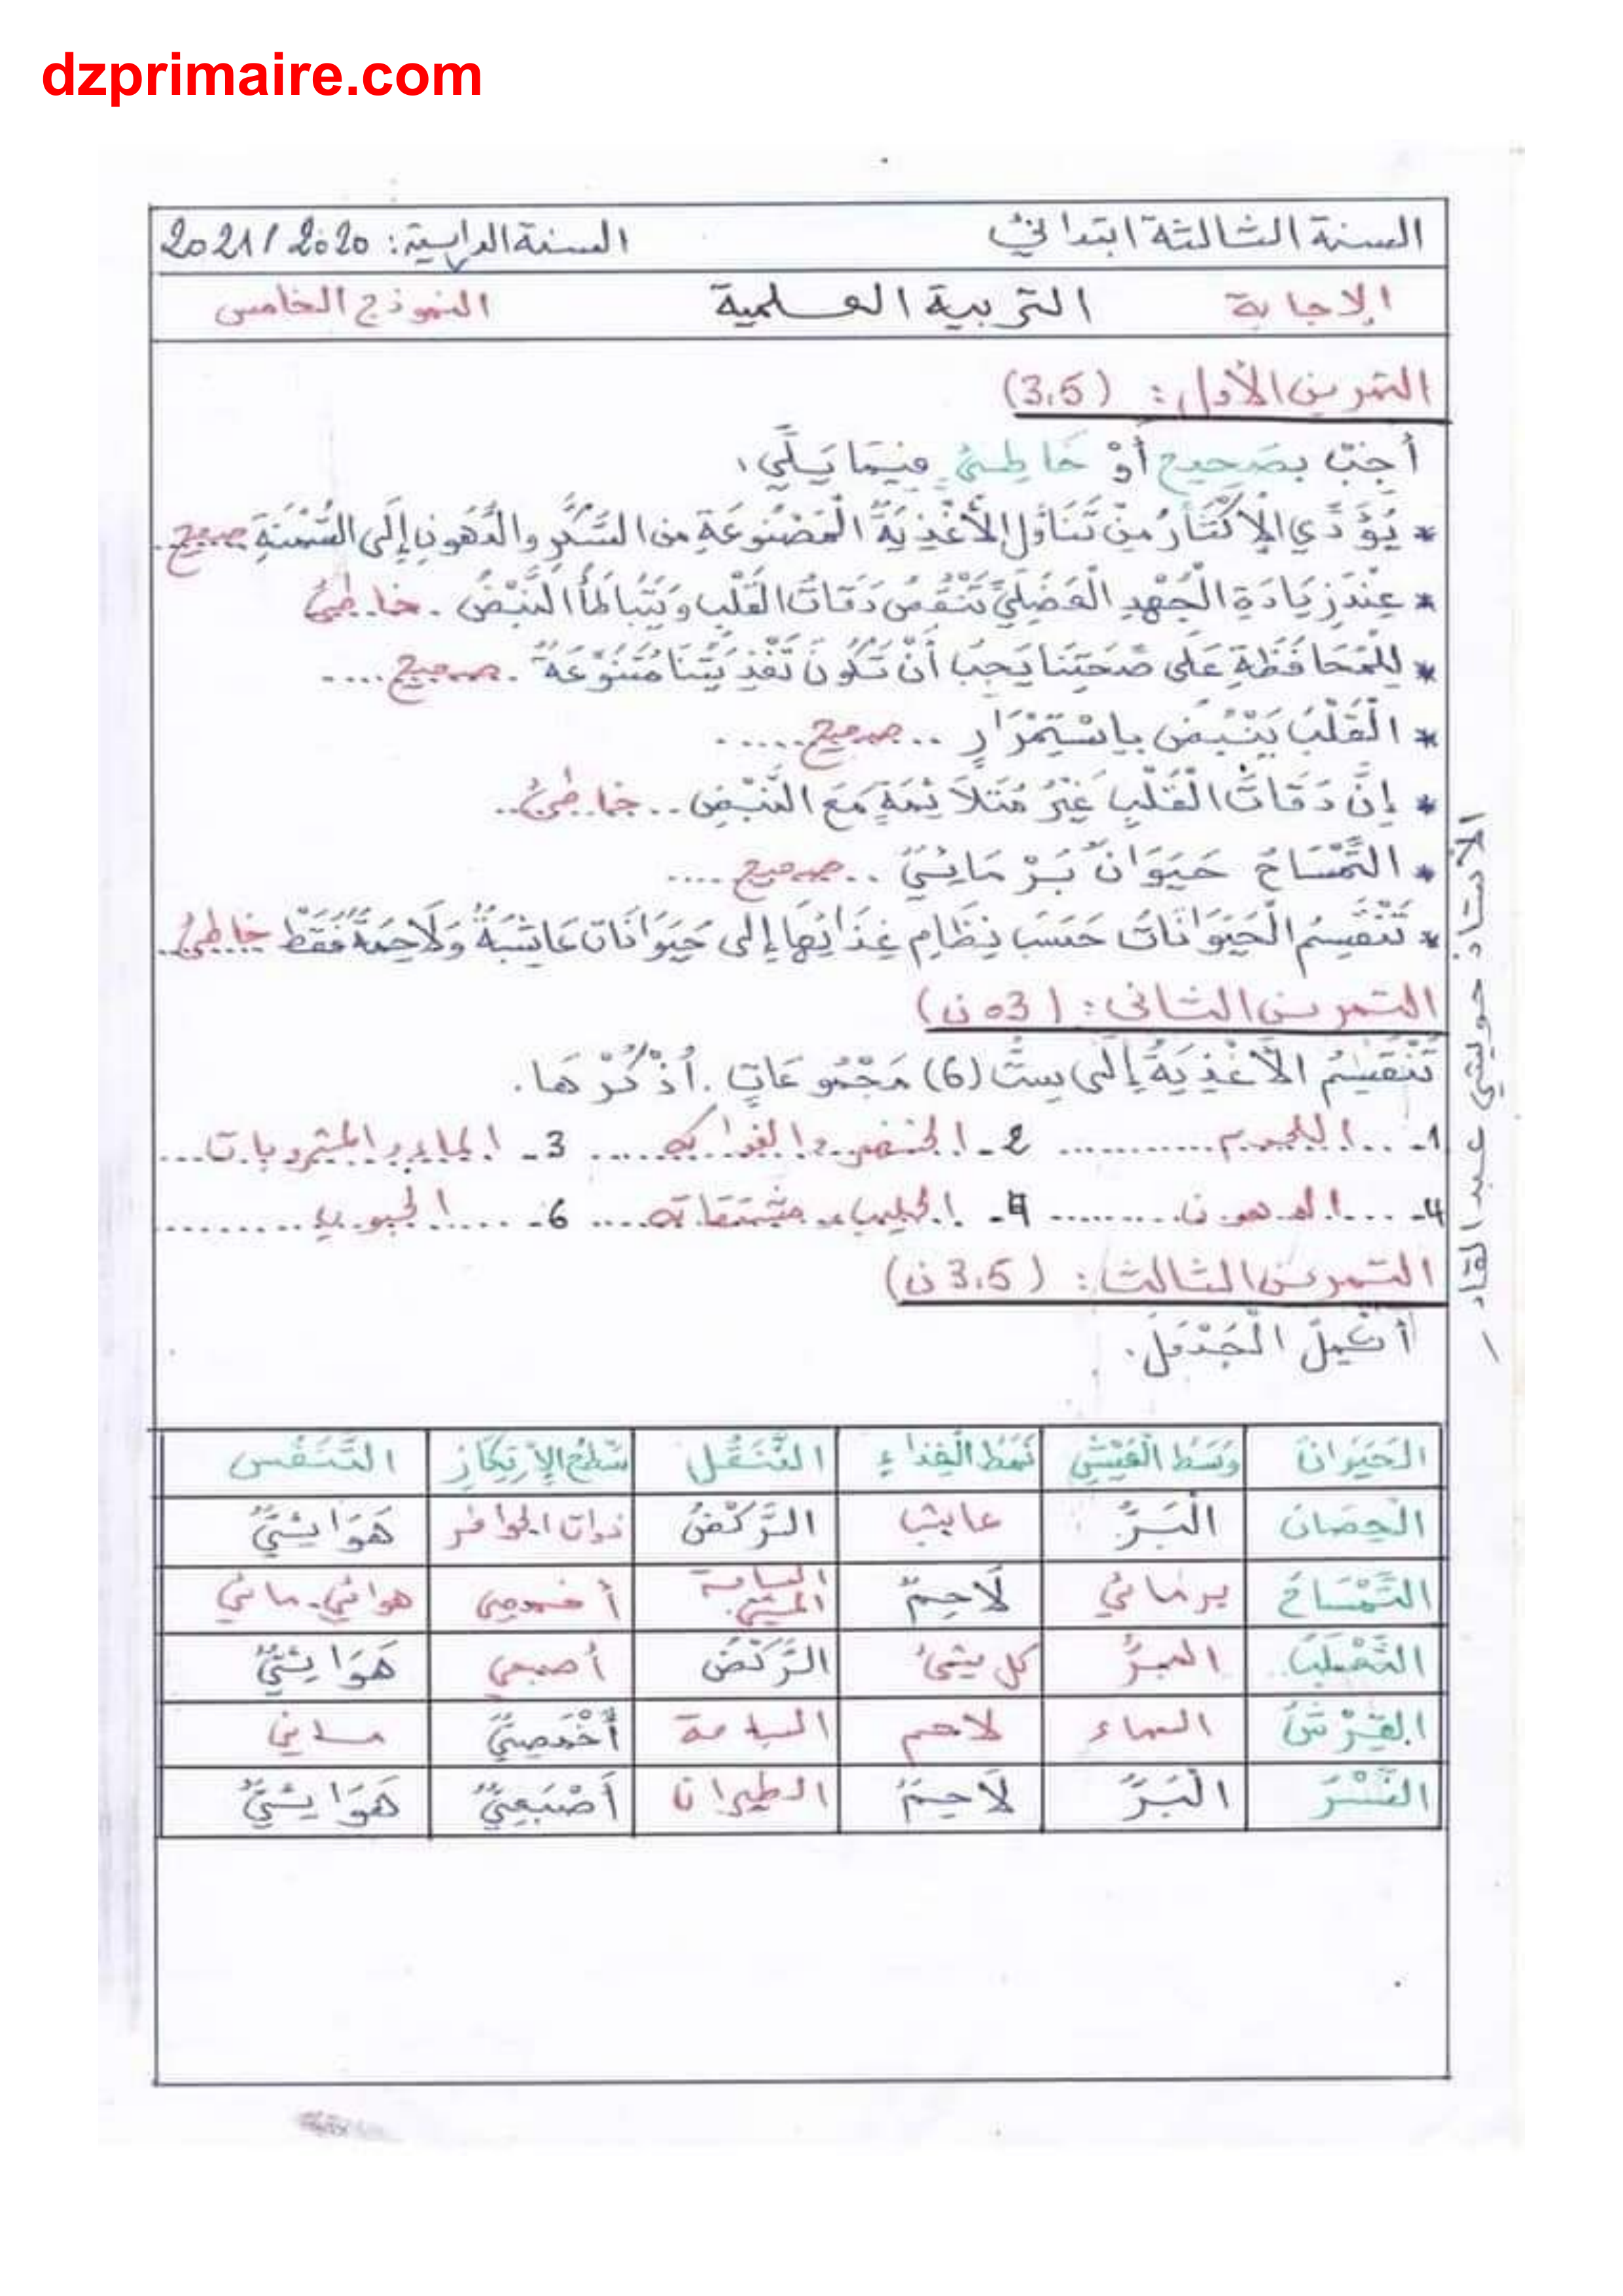 dzprimaire.com
السنة الثالثة ابتدائي السنة الدراسية: 2020/2021
الإجابة التربية العلمية النموذج الخامس
التمرين الأول: (3.5)
أَجِبْ بِصَحِيح أَوْ خَاطِئ فِيمَا يَلِّي:
* يُؤَدِّي الْإِكْتَارُ مِنْ تَنَاوُلِ الْأَغْذِيَةِ الْمَصْنُوعَةِ مِنَ السُّكَّرِ وَالدُّهُونِ إِلَى السُّمْنَةِ صحيح..
* عِنْدَ زِيَادَةِ الْجُهْدِ الْعَضَلِيِّ تَنْقُصُ دَقَاتُ الْقَلْبِ وَيَتَبَاطَأُ النَّبْضُ . خاطئ
* لِلْمُحَافَظَةِ عَلَى صَحَتِنَا يَجِبُ أَنْ تَكُونَ تَغْذِيَتُنَا مُتَنَوِّعَةٌ . صحيح....
* الْقَلْبُ يَنْبُضُ بِاسْتِمْرَارٍ .. صحيح.....
* إِنَّ دَقَاتَ الْقَلْبِ غَيْرُ مُتَلاَئِمَةٍ مَعَ النَّبْضِ .. خاطئ..
* التِّمْسَاحُ حَيَوَانٌ بَرْمَائِيٌّ .. صحيح....
* تَنْقَسِمُ الْحَيَوَانَاتُ حَسَبَ نِظَامِ غِذَائِهَا إِلَى حَيَوَانَات عَاشِبَةٌ وَلَاحِمَةٌ فَقَطْ خاطئ..
التمرين الثاني: (03 ن)
تَنْقَسِمُ الْأَغْذِيَةُ إِلَى سِتُّ (6) مَجْمُوعَاتٍ . أُذْكُرْهَا.
1- ...اللحوم............ 2- الخضر والفواكه..... 3- الماء والمشروبات...
4- ....الدهون......... 4- الحليب ومشتقاته.... 6- ....الحبوب.........
التمرين الثالث: (3.5 ن)
أَكْمِلْ الْجَدْوَلَ.
الْحَيَوَانُ وَسَطُ الْعَيْشِ نَمَطُ الْغِذَاءِ التَّنَقُّل سَطْحُ الْإِرْتِكَازِ التَّنَفُّس
الْحِصَانُ الْبَرُّ عاشب الرَّكْضُ ذوات الحوافر هَوَائِيٌّ
التِّمْسَاحُ برمائي لَاحِمٌ السباحة المشي أخمصي هوائي. مائي
الثَّعْلَبُ البرُّ كل شيئ الرَّكْضُ أصبعي هَوَائِيٌّ
الْقِرْشُ الماء لاحم السباحة أَخْمَصِيٌّ مائي
النَّسْرُ الْبَرُّ لَاحِمٌ الطيران أَصْبَعِيٌّ هَوَائِيٌّ
الأستاذ حويتي عبد القادر